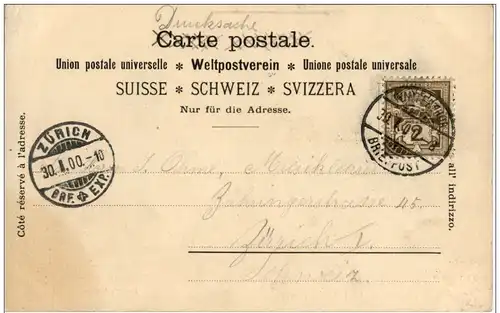 Drucksache
Carte postale.
Union postale universelle * Weltpostverein * Unione postale universale
SUISSE * SCHWEIZ * SVIZZERA
Nur für die Adresse.
Côté réservé à l'adresse.
all' indirizzo.
ZÜRICH
30.I.00.-10
BRF. EXP.
2
BRIEFPOST
Zähringerstrasse 45.
Zürich I.
Schweiz.